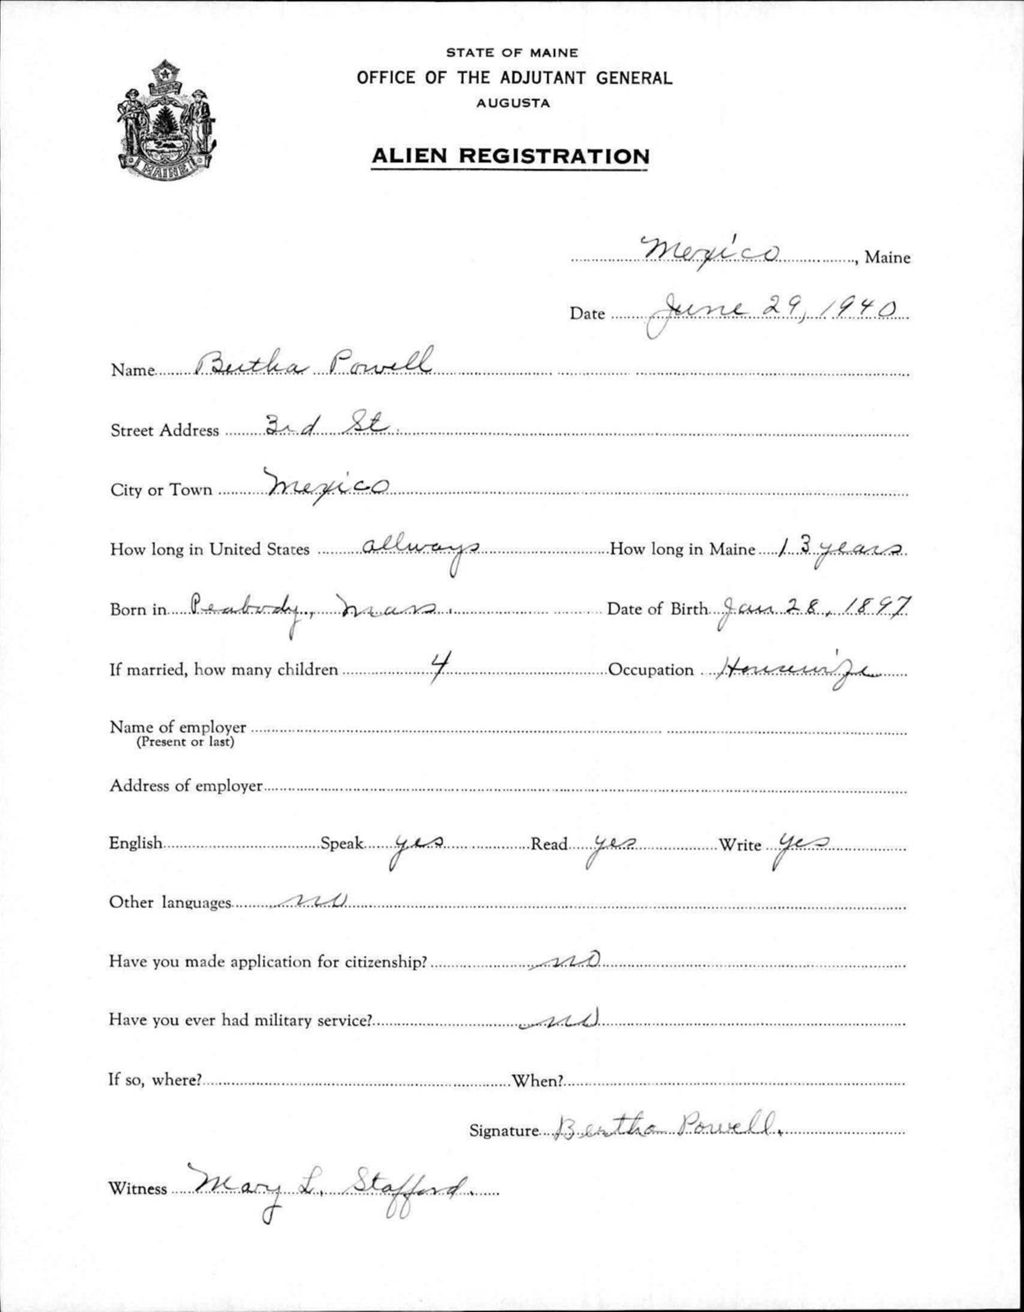 STATE OF MAINE
OFFICE OF THE ADJUTANT GENERAL
AUGUSTA
ALIEN REGISTRATION
MAINE
Mexico, Maine
Date June 29, 1940
Name Bertha Powell
Street Address 3rd St.
City or Town Mexico
How long in United States allways How long in Maine 13 years
Born in Peabody, Mass. Date of Birth Jan 28, 1897
If married, how many children 4 Occupation Housewife
Name of employer
(Present or last)
Address of employer
English Speak yes Read yes Write yes
Other languages no
Have you made application for citizenship? no
Have you ever had military service? no
If so, where? When?
Signature Bertha Powell.
Witness Mary L. Stafford.